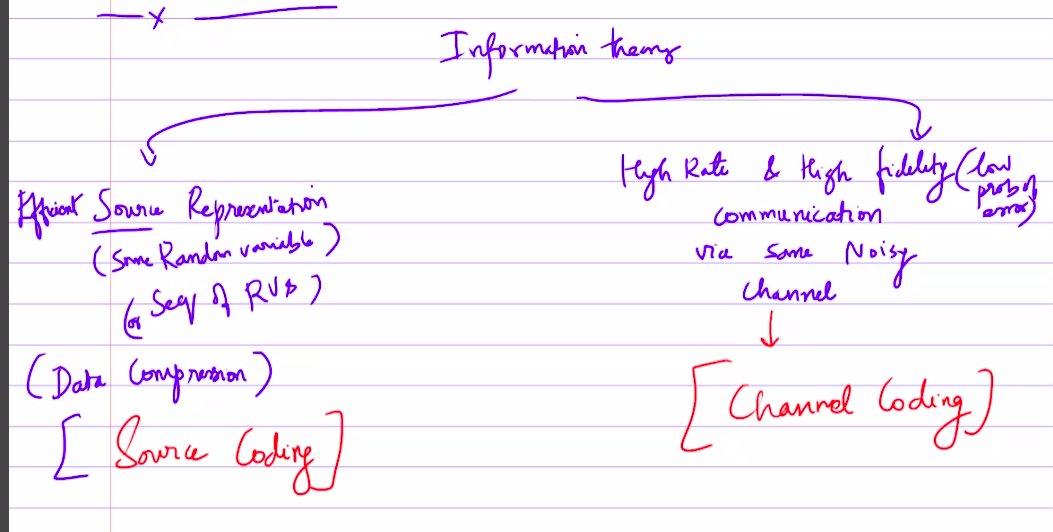 Information theory
Efficient Source Representation
(Some Random variable)
(or Seq of RVs)
(Data Compression)
[Source Coding]
High Rate & High fidelity (low
prob of
error)
communication
via some Noisy
Channel
[Channel Coding]